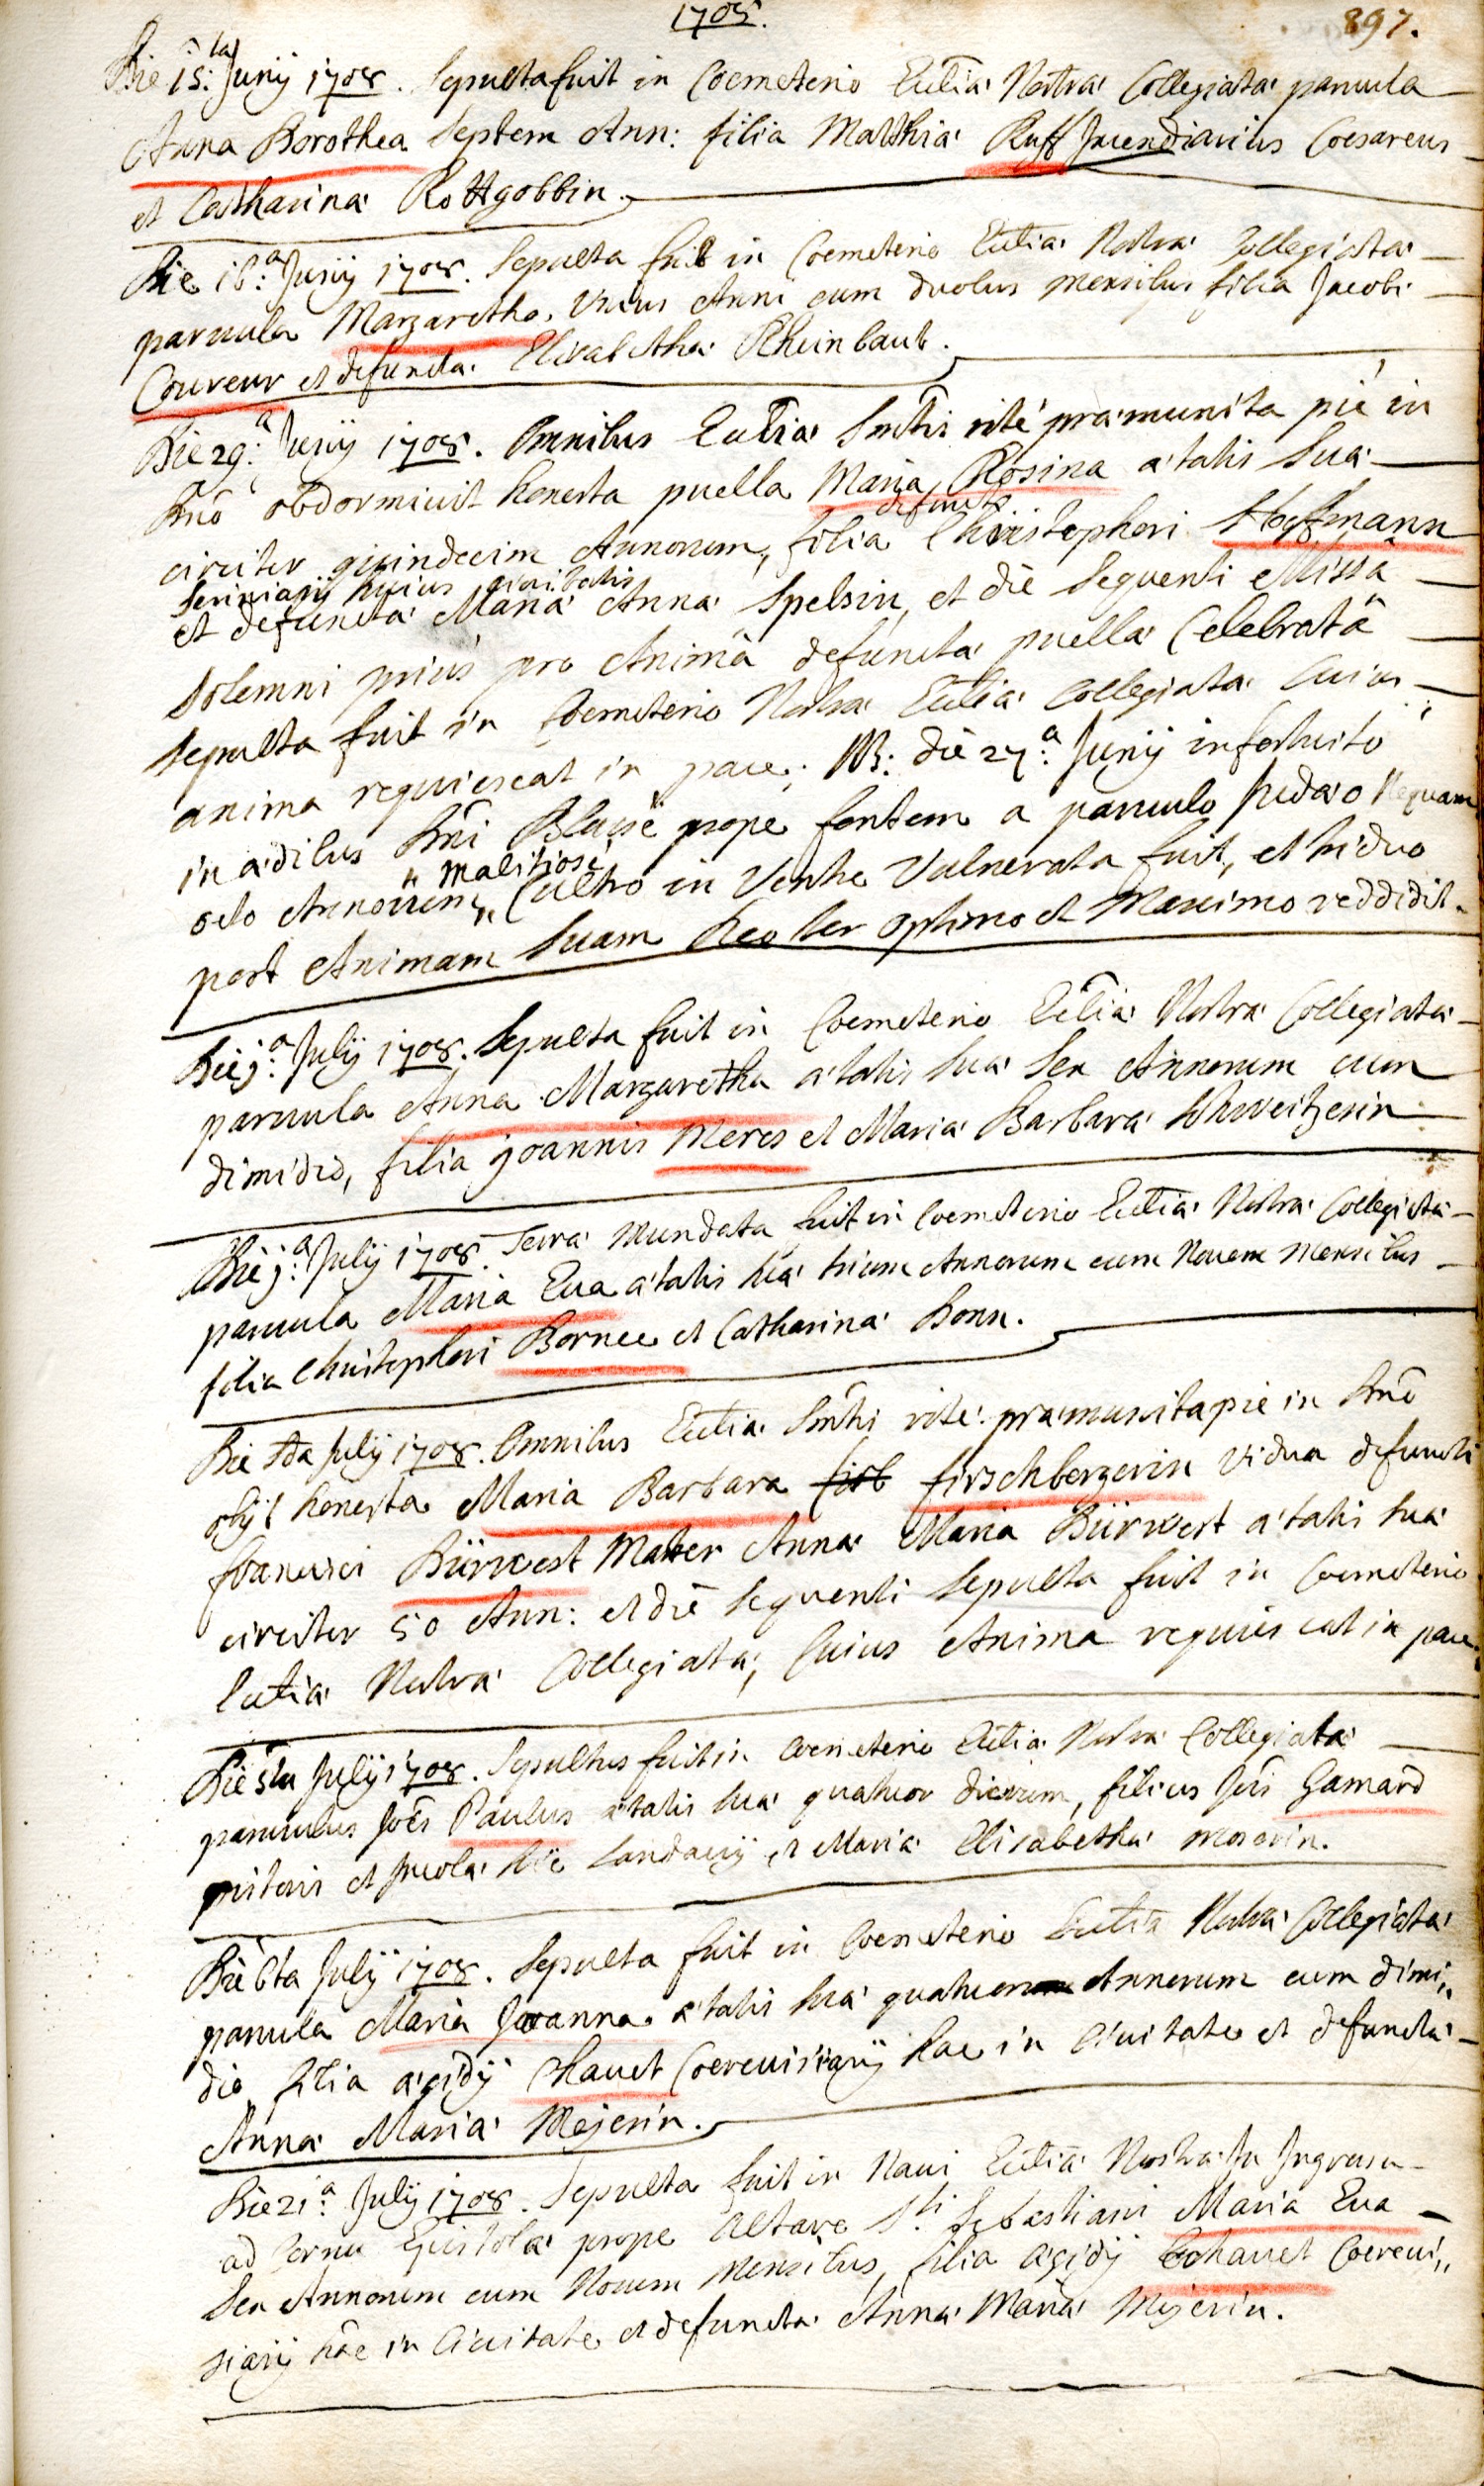 1708.
897.
Die 15:ta Junij 1708. Sepulta fuit in Coemeterio Eccliæ Nostræ Collegiatæ parvula
Anna Dorothea Septem Ann: filia Matthiæ Ruff Incendiarius Coesareus
et Catharinæ Rottgobbin.
Die 16:a Junij 1708. Sepulta fuit in Coemeterio Eccliæ Nostræ Collegiatæ
parvula Margaretha, Unius Anni cum duobus mensibus filia Jacobi
Coureur et defunctæ Elisabethæ Rheinbault.
Die 29:a Junij 1708. Omnibus Eccliæ Smtis rité præmunita pié in
Dnō obdormivit honesta puella Maria Rosina ætatis Suæ
circiter quindecim Annorum, filia defuncti Christopheri Hoffmann
Scriniarij huius civitatis
et defunctæ Mariæ Annæ Spelsin, et die Sequenti Missâ
Solemni priùs pro Animâ defunctæ puellæ Celebratâ
Sepulta fuit in Coemeterio Nostræ Eccliæ Collegiatæ Cuius
anima requiescat in pace; NB: die 27:a Junij infortuitò
in ædibus Dni Blaise prope fontem a parvulo Judæo Nequam
octo Annorum, malitiosè Cultro in Ventre Vulnerata fuit, et triduo
post Animam Suam Deo ter optimo et Maximo reddidit.
Die j:a Julij 1708. Sepulta fuit in Coemeterio Eccliæ Nostræ Collegiatæ
parvula Anna Margaretha ætatis Suæ Sex Annorum cum
dimidio, filia Joannis Meres et Mariæ Barbaræ Schweitzerin
Die j:a Julij 1708. Terræ Mundata fuit in Coemeterio Eccliæ Nostræ Collegiatæ
parvula Maria Eva ætatis Suæ trium Annorum cum Novem Mensibus
filia Christopheri Bornee et Catharinæ Bonn.
Die Julij 1708. Omnibus Eccliæ Smtis rité præmunita pie in Dnō
obijt honesta Maria Barbara firschbergerin vidua defuncti
francisci Bürwest Mater Annæ Maria Bürwest ætatis Suæ
circiter 50 Ann: et die Sequenti Sepulta fuit in Coemeterio
Eccliæ Nostræ Collegiatæ, Cuius Anima requiescat in pace.
Die 5ta Julij 1708. Sepultus fuit in Coemeterio Eccliæ Nostræ Collegiatæ
parvulus Joēs Paulus ætatis Suæ quatuor dierum, filius Gamard
pistoris et Incolæ hic Landavij et Mariæ Elisabethæ Moserin.
Die 6ta Julij 1708. Sepulta fuit in Coemeterio Eccliæ Nostræ Collegiatæ
parvula Maria Joanna ætatis Suæ quatuor Annorum cum dimi„
dio filia ægidij Chauet Coerevisiarij hac in Civitate et defunctæ
Annæ Mariæ Mejerin.
Die 21:a Julij 1708. Sepulta fuit in Navi Eccliæ Nostræ In Ingressu
ad Cornu Epistolæ prope Altare S:ti Sebastiani Maria Eva
Sex Annorum cum Novem Mensibus, filia ægidij Chauet Coerevi„
siarij hâc in Civitate et defunctæ Annæ Mariæ Mejerin.